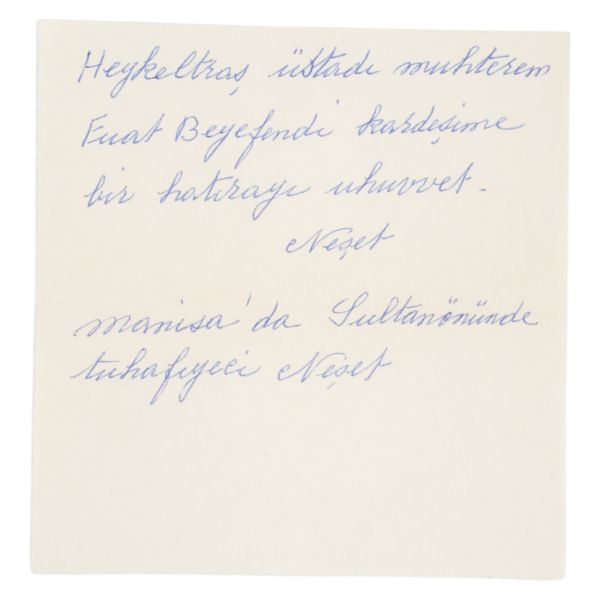 Heykeltraş üstadı muhterem
Fuat Beyefendi kardeşime
bir hatırayı uhuvvet.
Neşet
Manisa'da Sultanönünde
tuhafiyeci Neşet